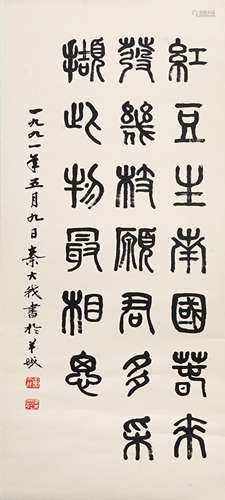 紅豆生南國春來
發幾枝願君多采
擷此物最相思
一九九一年五月九日秦大我書於羊城